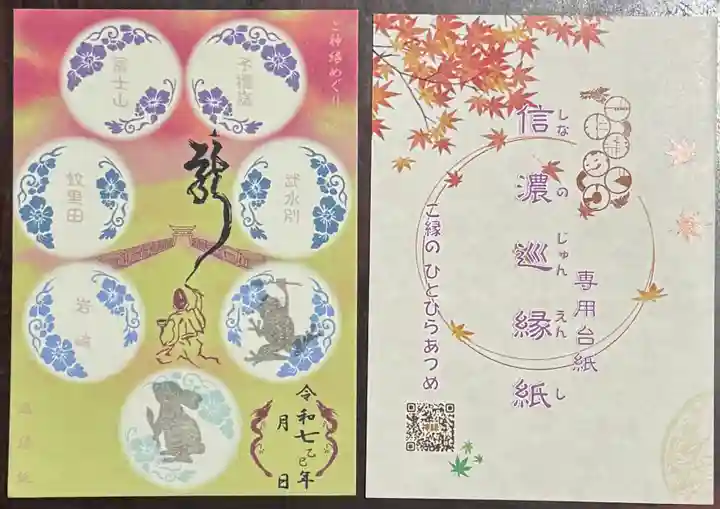 ご神紙めぐり
子檀嶺
冨士山
武水別
蚊里田
岩崎
龍
令和七乙巳年
月 日
信濃巡縁紙
しな の じゅん えん し
専用台紙
ご縁のひとひらあつめ